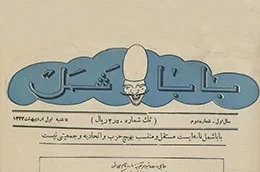 بابا شمل
سال اول - شماره دوم ( تک شماره ۲٫۵۰ ریال ) ۵ شنبه اول اردیبهشت ۱۳۲۲
باباشمل نامه‌ایست مستقل و منتسب بهیچ حزب و اتحادیه و جمعیتی نیست